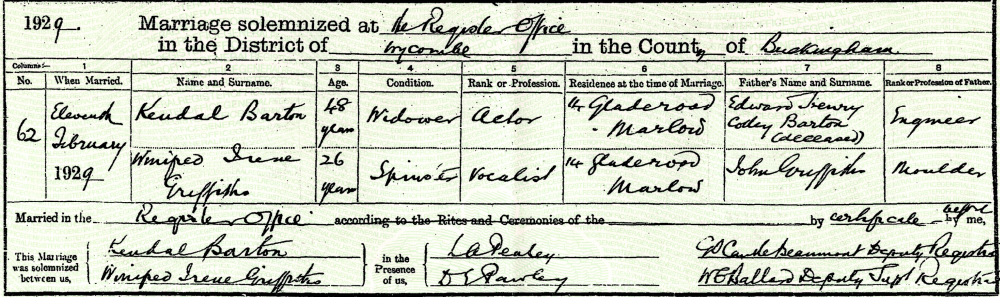 1929. Marriage solemnized at the Register Office
in the District of Wycombe in the County of Buckingham.
Columns:— 1 2 3 4 5 6 7 8
No. When Married. Name and Surname. Age. Condition. Rank or Profession. Residence at the time of Marriage. Father's Name and Surname. Rank or Profession of Father.
62 Eleventh February 1929 Kendal Barton 48 years Widower Actor 14 Gladeroad Marlow Edward Cotley Barton (deceased) Engineer
Winifred Irene Griffiths 26 years Spinster Vocalist 14 Gladeroad Marlow John Griffiths Moulder
Married in the Register Office according to the Rites and Ceremonies of the by certificate before by me,
This Marriage was solemnized between us, Kendal Barton in the Presence of us, L A Deputy Registrar
Winifred Irene Griffiths D E Pawley W E Ballard Deputy Supt Registrar